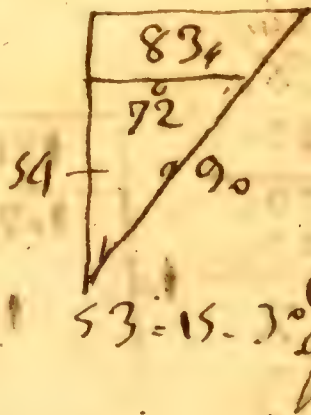 834
72
54
90
53 = 15 - 3°